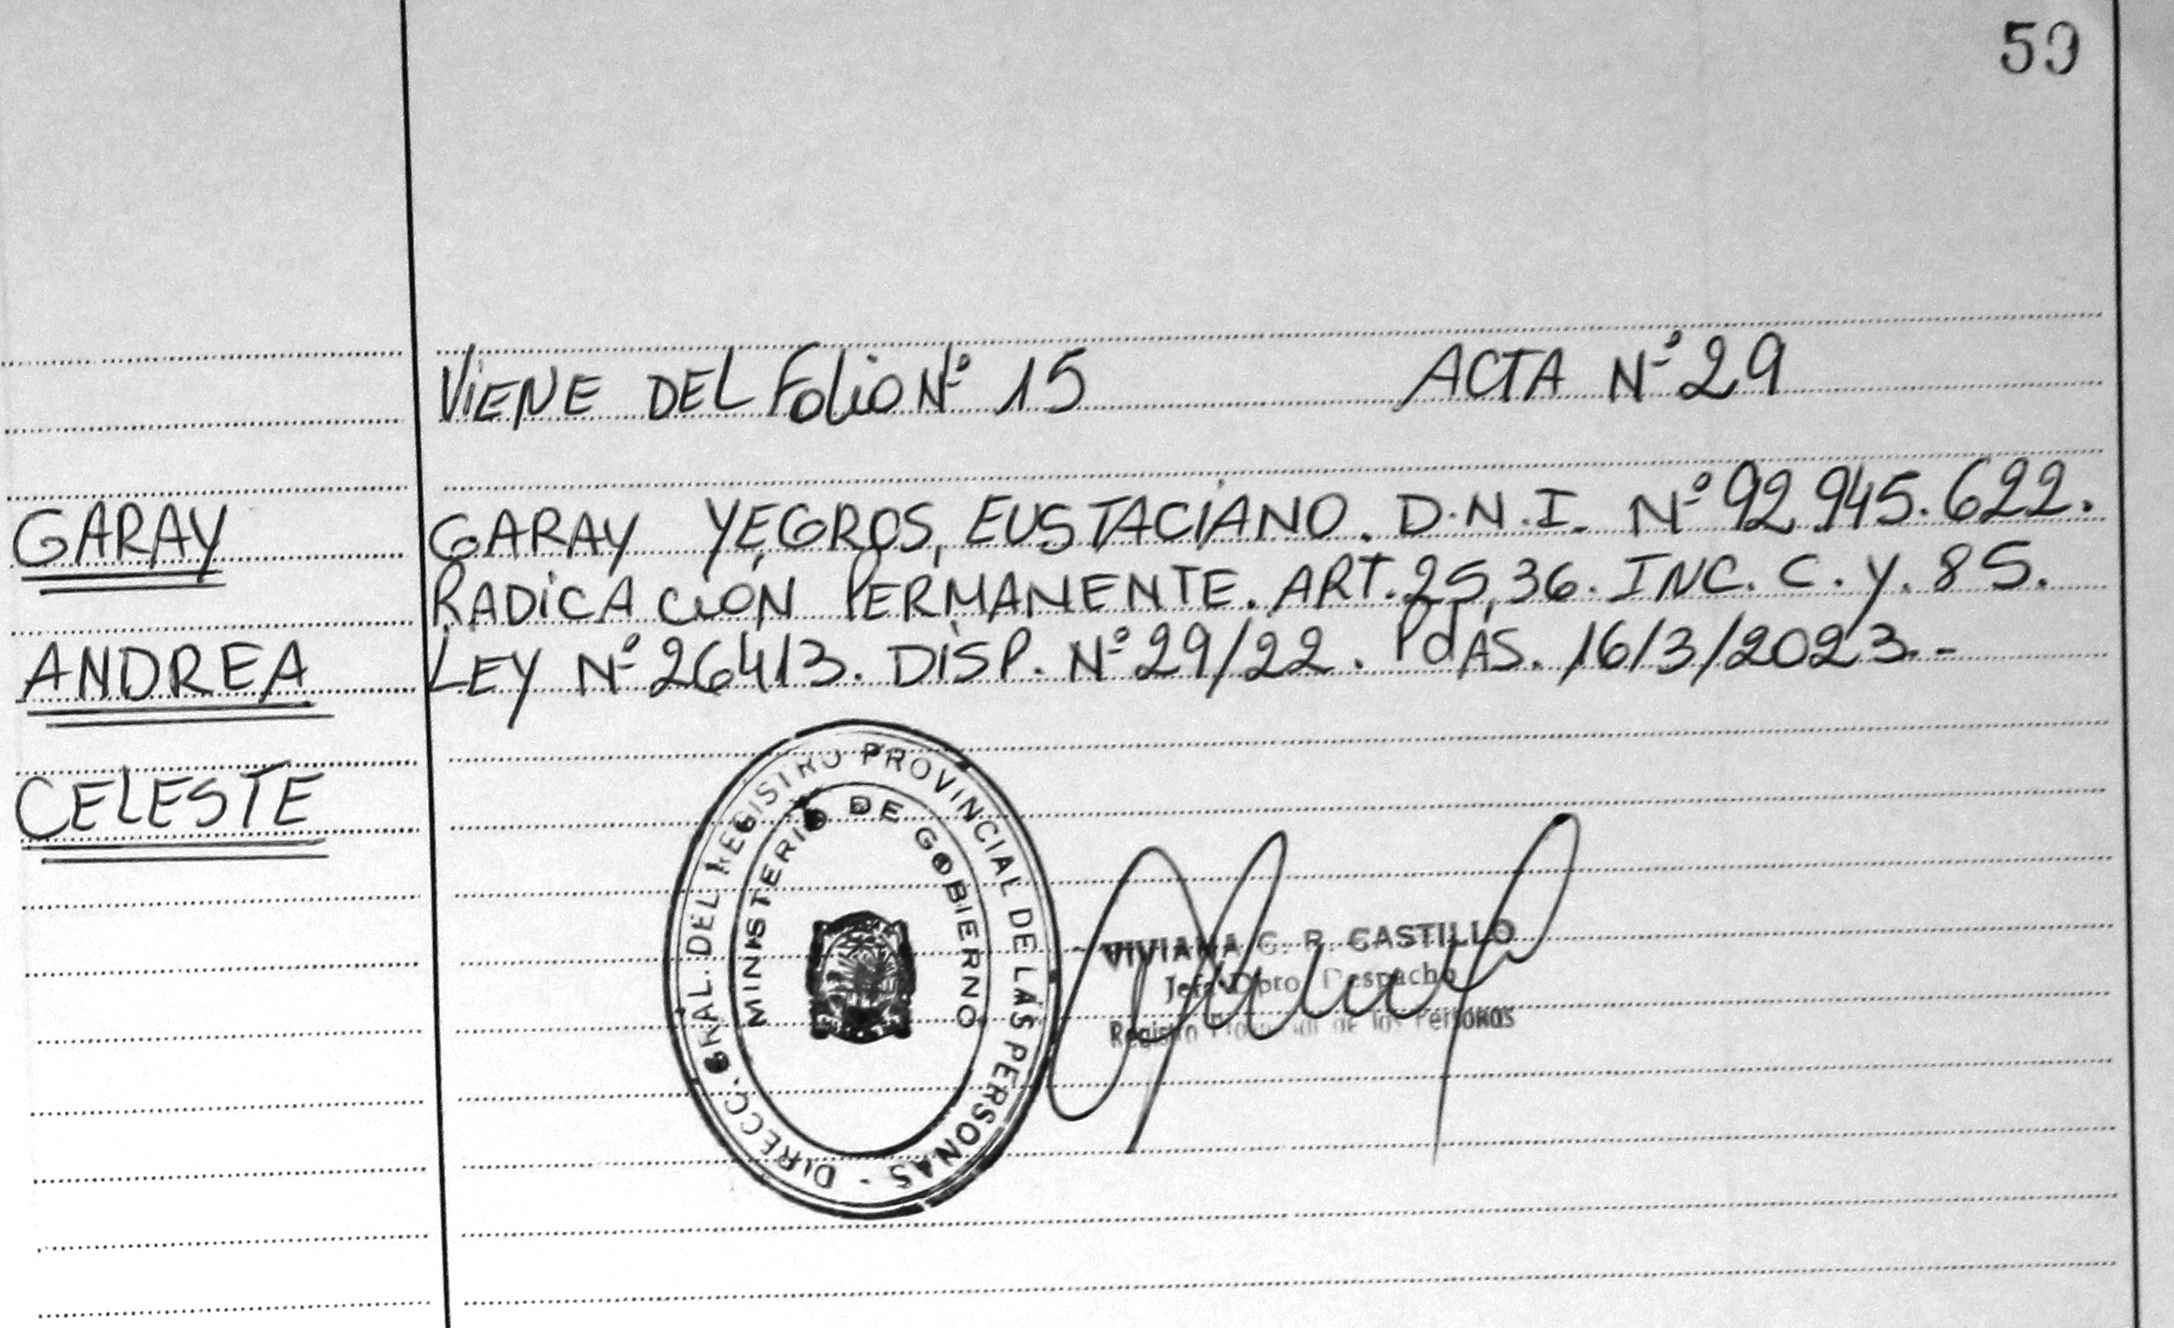 59
VIENE DEL Folio Nº 15 ACTA Nº 29
GARAY
ANDREA
CELESTE
GARAY YEGROS, EUSTACIANO. D.N.I. Nº 92.945.622.
RADICACIÓN PERMANENTE. ART. 25, 36. INC. C. Y. 85.
LEY Nº 26413. DISP. Nº 29/22. PdAS. 16/3/2023.-
DIRECC. GRAL. DEL REGISTRO PROVINCIAL DE LAS PERSONAS -
MINISTERIO DE GOBIERNO
VIVIANA C. R. CASTILLO
Jefa Dpto. Despacho
Registro Provincial de las Personas